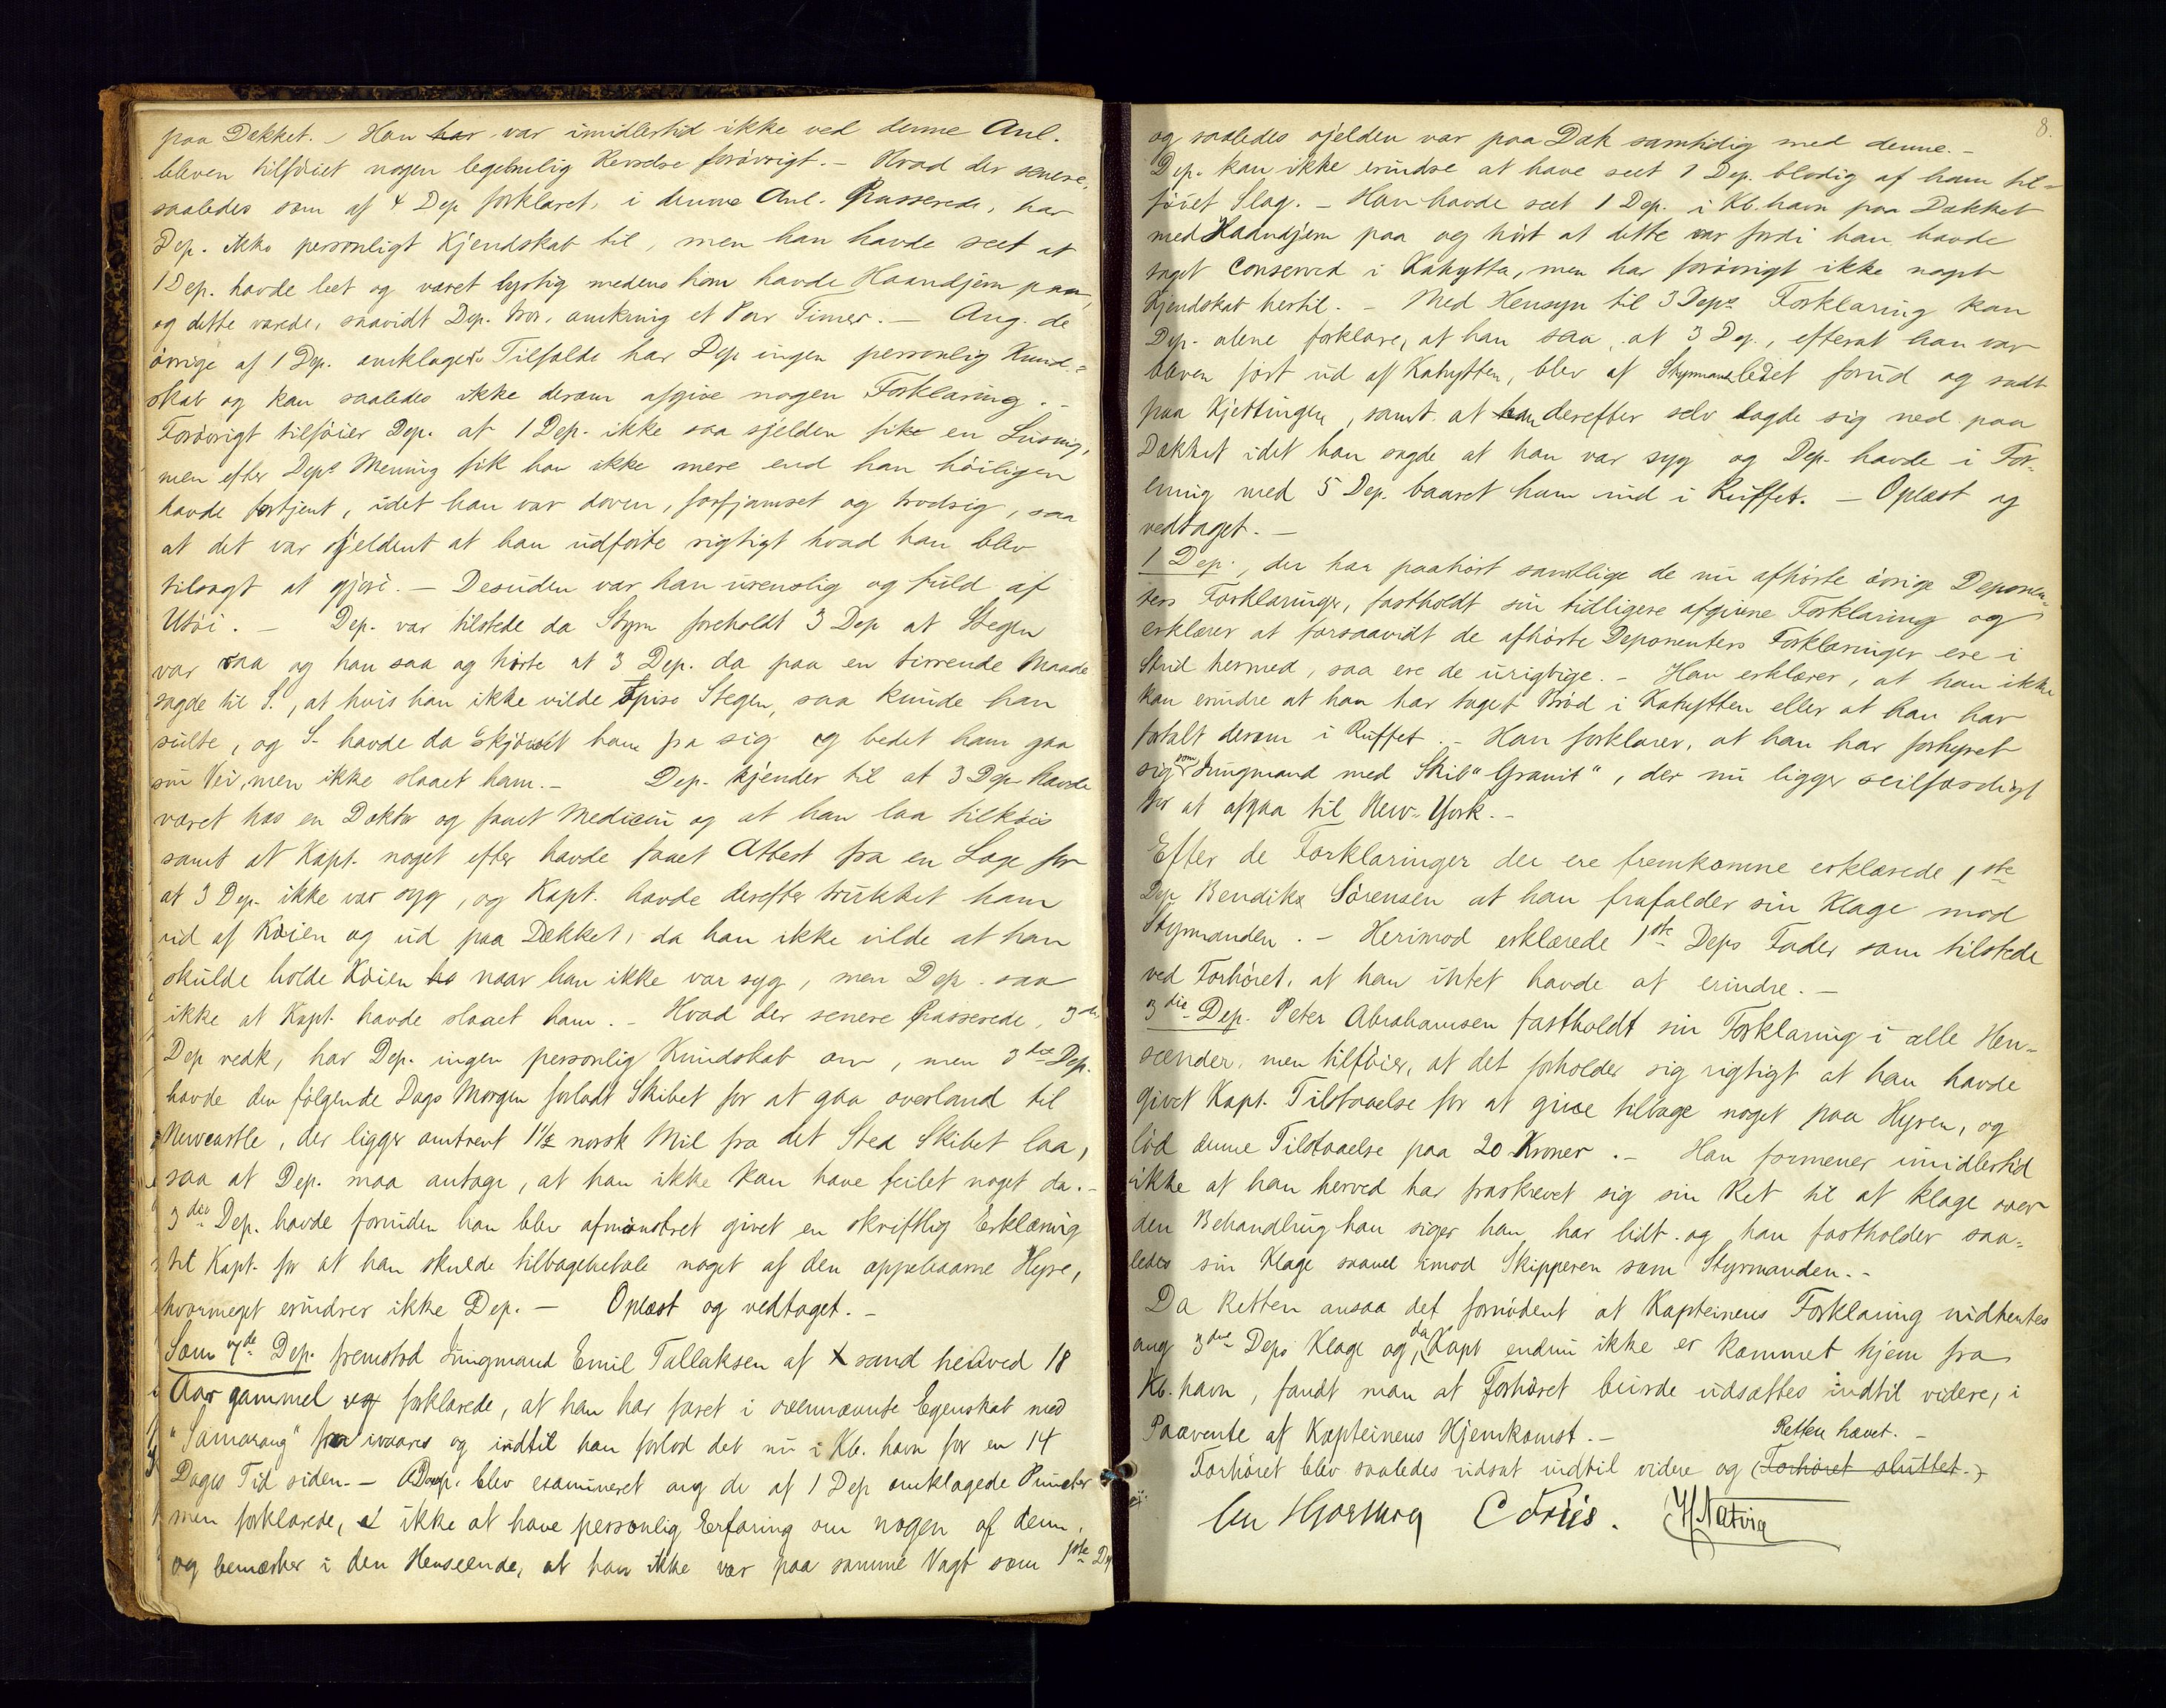 paa Dækket. Han har var imidlertid ikke ved denne Anl.
bleven tilföiet nogen legemlig Revselse forövrigt. – Hvad der senere,
saaledes som af 4 Dep forklaret, i denne Anl. Passerede, har
Dep. ikke personligt Kjendskab til, men han havde seet at
1 Dep. havde leet og været lystig medens han havde Haandjern paa,
og dette varede, saavidt Dep. tror, omkring et Par Timer. – Ang. de
övrige af 1 Dep. omklagede Tilfælde har Dep ingen personlig Kund-
skab og kan saaledes ikke derom afgive nogen Forklaring. –
Forövrigt tilföier Dep. at 1 Dep. ikke saa sjelden fik en Lusing,
men efter Deps Mening fik han ikke mere end han höiligen
havde fortjent, idet han var doven, forfjamset og trodsig, saa
at det var sjeldent at han udförte rigtigt hvad han blev
tilsagt at gjöre. – Desuden var han urenslig og fuld af
Utöi. – Dep. var tilstede da Styrm foreholdt 3 Dep at Stegen
var raa og han saa og hörte at 3 Dep. da paa en tirrende Maade
sagde til S., at hvis han ikke vilde spise Stegen, saa kunde han
sulte, og S. havde da skjövet ham fra sig og bedet ham gaa
sin Vei, men ikke slaaet ham. – Dep. kjender til at 3 Dep havde
været hos en Doktor og faaet Medicin og at han laa tilköis
samt at Kapt. noget efter havde faaet Attest fra en Læge for
at 3 Dep. ikke var syg, og Kapt. havde derefter trukket ham
ud af Köien og ud paa Dækket, da han ikke vilde at han
skulde holde Köien ha naar han ikke var syg, men Dep. saa
ikke at Kapt. havde slaaet ham. – Hvad der senere Passerede, 3die
Dep vedk, har Dep. ingen personlig Kundskab om, men 3die Dep.
havde den fölgende Dags Morgen forladt Skibet for at gaa overland til
Newcastle, der ligger omtrent 1½ norsk Mil fra det Sted Skibet laa,
saa at Dep. maa antage, at han ikke kan have feilet noget da. –
3die Dep. havde forinden han blev afmönstret givet en skriftlig Erklæring
til Kapt. for at han skulde tilbagebetale noget af den oppebaarne Hyre,
hvormeget erindrer ikke Dep. – Oplæst og vedtaget. –
Som 7de Dep. fremstod Jungmand Emil Tallaksen af sand henved 18
Aar gammel og forklarede, at han har faret i ovennævnte Egenskab med
"Samarang" fra ivaares og indtil han forlod det nu i Kb. havn for en 14
Dages Tid siden. – Dep. blev examineret ang de af 1 Dep omklagede Puncter
men forklarede, at ikke at have personlig Erfaring om nogen af dem,
og bemærker i den Henseende, at han ikke var paa samme Vagt som 1ste Dep
8.
og saaledes sjelden var paa Dæk samtidig med denne. –
Dep. kan ikke erindre at have seet 1 Dep. blodig af ham til-
föiet Slag. – Han havde seet 1 Dep. i Kb. havn paa Dækket
med Haandjern paa og hört at dette var fordi han havde
taget Conserved i Kahytta, men har forövrigt ikke noget
Kjendskab hertil. – Med Hensyn til 3 Deps Forklaring kan
Dep. alene forklare, at han saa, at 3 Dep., efterat han var
bleven fört ud af Kahytten, blev af Styrmand ledet forud og sadt
paa Kjettingen, samt at han derefter selv lagde sig ned paa
Dækket idet han sagde at han var syg og Dep. havde i For-
ening med 5 Dep. baaret ham ind i Ruffet. – Oplæst og
vedtaget. –
1 Dep., der har paahört samtlige de nu afhörte övrige Deponen-
ters Forklaringer, fastholdt sin tidligere afgivne Forklaring og
erklærer at forsaavidt de afhörte Deponenters Forklaringer ere i
Strid hermed, saa ere de urigtige. – Han erklærer, at han ikke
kan erindre at han har taget Bröd i Kahytten eller at han har
fortalt derom i Ruffet. – Han forklarer, at han har forhyret
sig som Jungmand med Skib "Granit", der nu ligger seilfærdigt
for at afgaa til New-York. –
Efter de Forklaringer der ere fremkomne erklærede 1ste
Dep Bendiks Sörensen at han frafalder sin Klage mod
Styrmanden. – Herimod erklærede 1ste Deps Fader som tilstede
ved Forhöret, at han intet havde at erindre. –
3die Dep. Peter Abrahamsen fastholdt sin Forklaring i alle Hen-
seender, men tilföier, at det forholder sig rigtigt at han havde
givet Kapt. Tilstaaelse for at give tilbage noget paa Hyren, og
löd denne Tilstaaelse paa 20 Kroner. – Han formener imidlertid
ikke at han herved har fraskrevet sig sin Ret til at klage over
den Behandling han siger han har lidt og han fastholder saa-
ledes sin Klage saavel imod Skipperen som Styrmanden. –
Da Retten ansaa det fornödent at Kapteinens Forklaring indhentes
ang 3die Deps Klage og da Kapt endnu ikke er kommet hjem fra
Kb. havn, fandt man at Forhöret burde udsættes indtil videre, i
Paavente af Kapteinens Hjemkomst. – Retten hævet. –
Forhöret blev saaledes udsat indtil videre og (Forhöret sluttet.)
C Friis. H Natvig